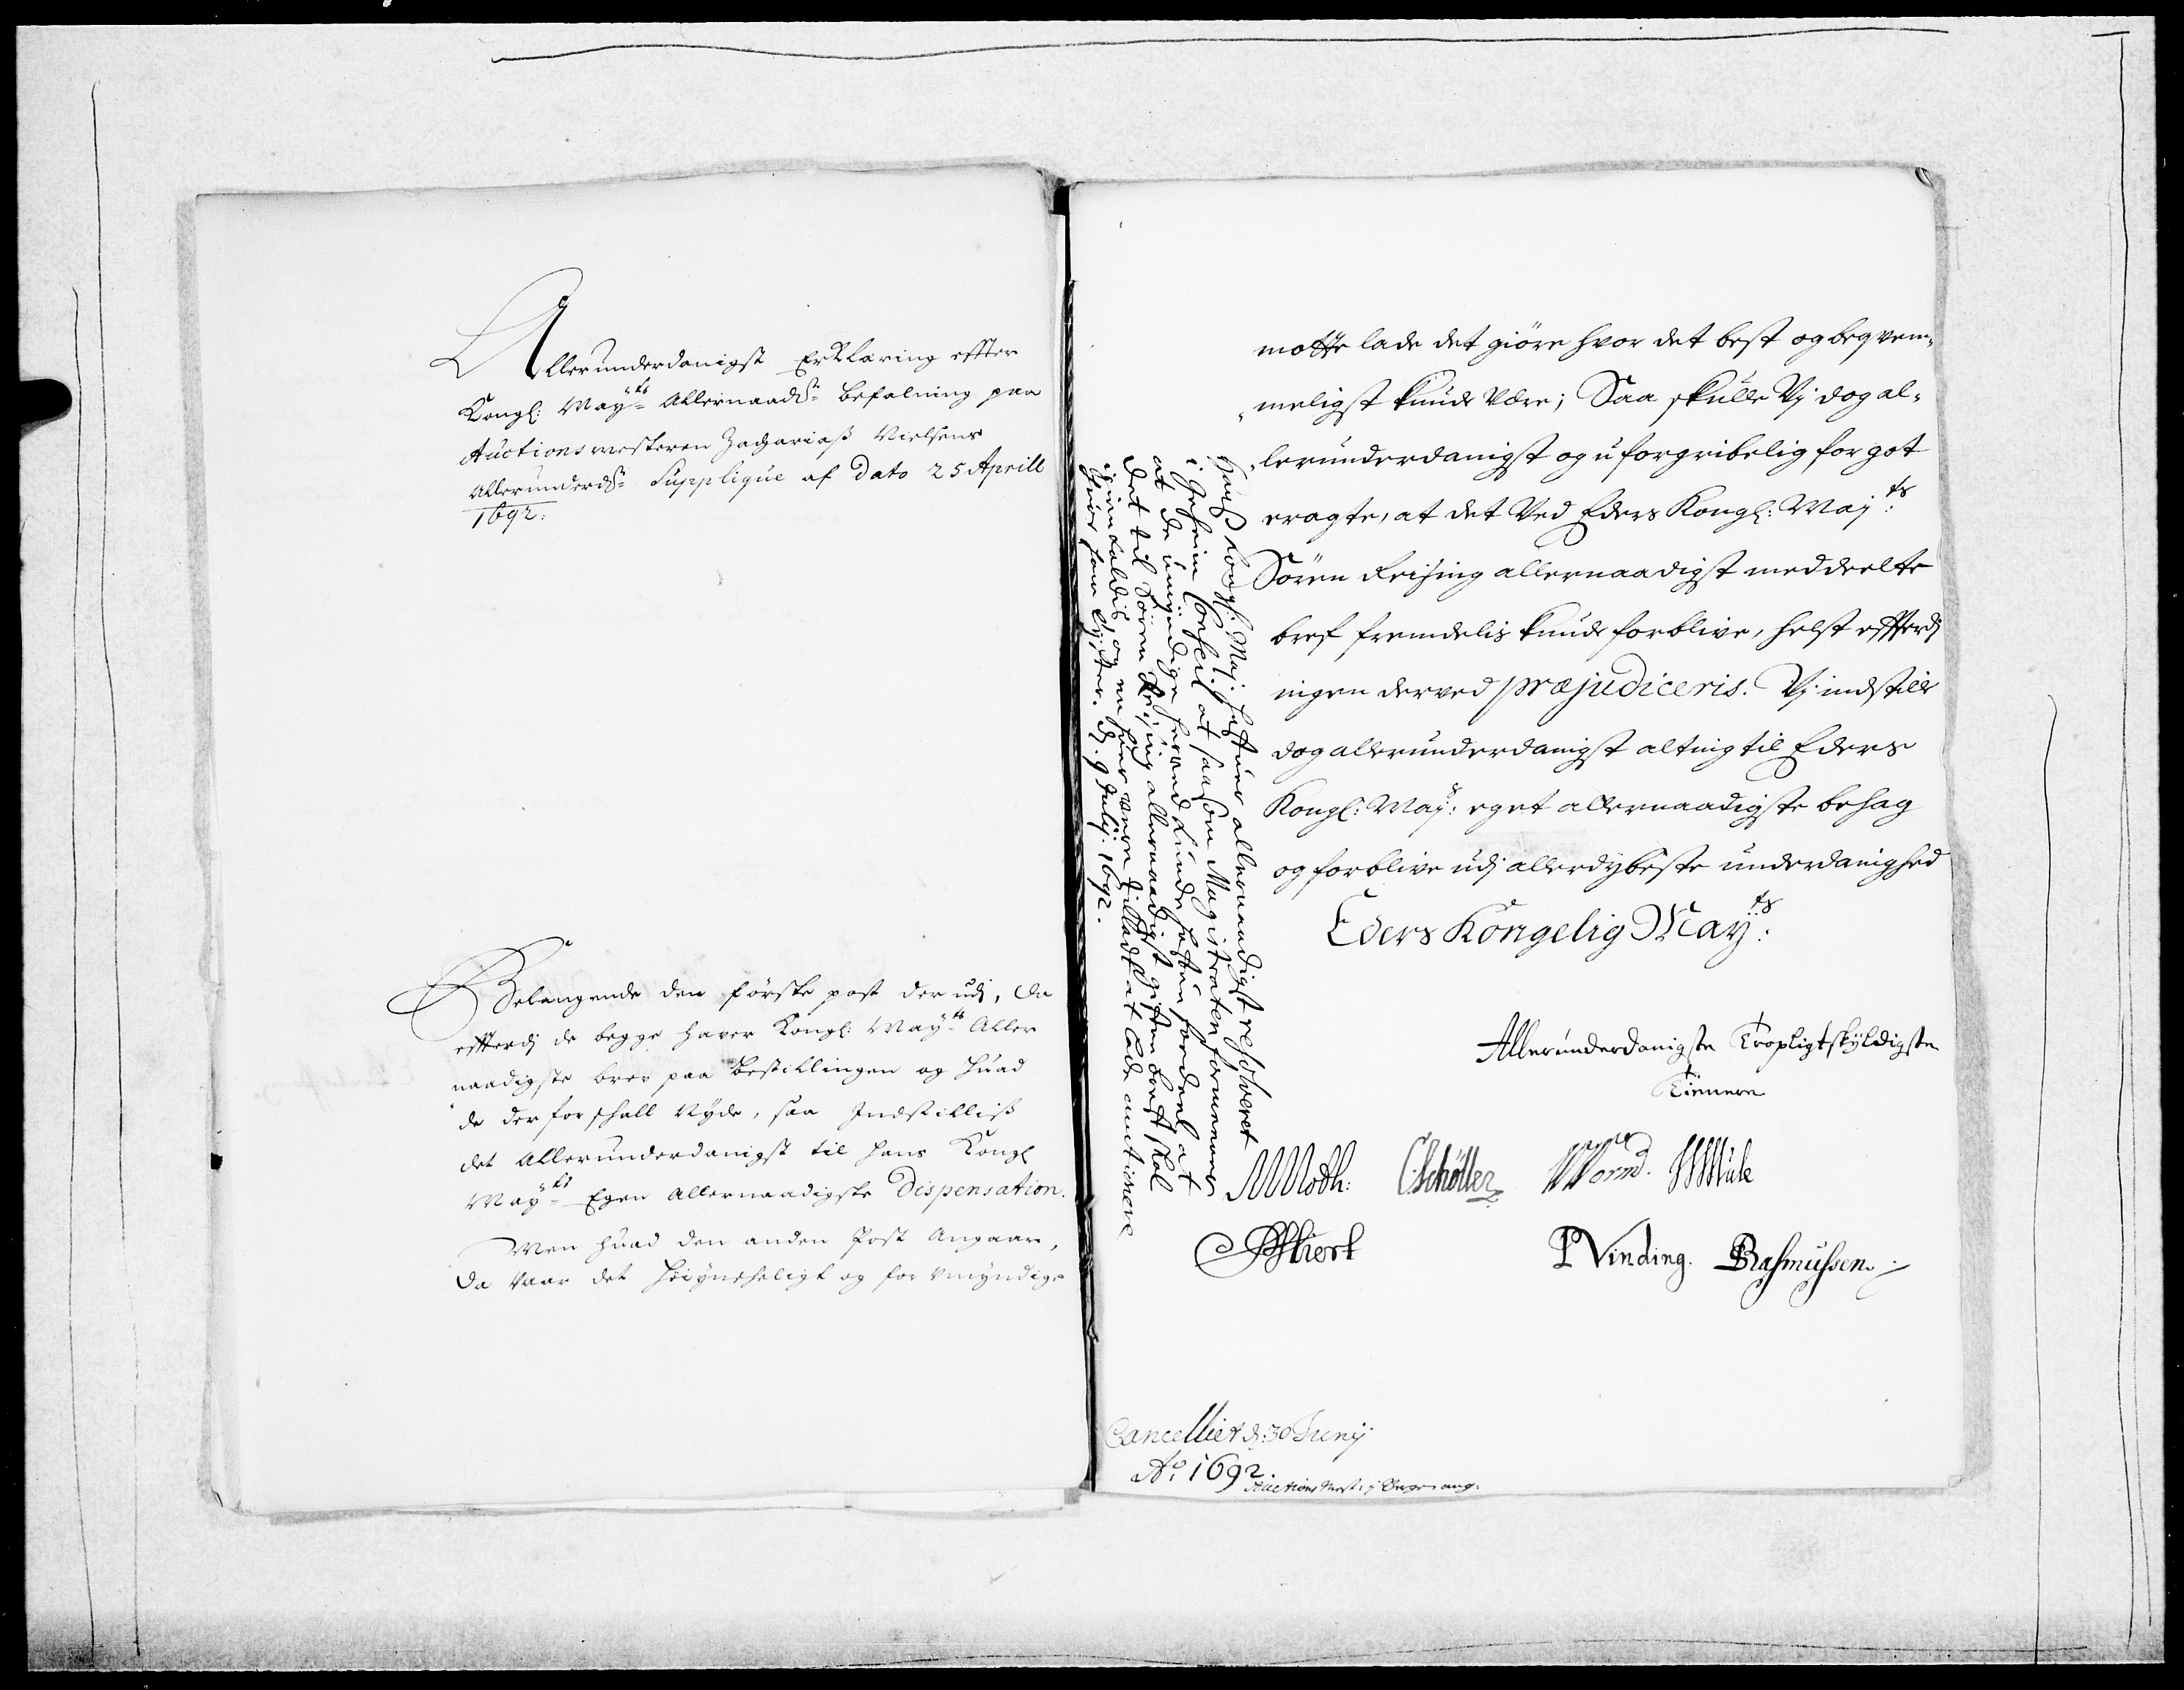 Allerunderdanigst Erklæring effter
Kongl: May:ts Allernaadst: befalning paa
Auctions mesteren Zacharias Nielsens
Allerunderdst: Supplique af Dato 25 Aprill
1692:
Belangende den förste post der udj, da
effterdj de begge haver Kongl: May:ts Aller
naadigste brev paa bestillingen og huad
de derfor schall Nyde, saa Indstilliss
det Allerunderdanigst til hans Kongl
May:ts Egen Allernaadigste Dispensation.
Men huad den anden Post Angaar,
da vaar det höiynscheligt og for Umyndige
motte lade det giöre hvor det best og beqvem-
meligst kunde være; Saa skulle Vj dog al-
lerunderdanigst og uforgribelig for got
eragte, at det Ved Eders Kongl: Maj:ts
Sören Reising allernaadigst meddeelte
bref fremdelis kunde forblive, helst effterdj
ingen derved præjudiceris. Vj indstille
dog allerunderdanigst alting til Eders
Kongl: Maj:ts eget allernaadigste behag
og forblive udj allerdybeste underdanighed
Eders Kongelig May:ts
Allerunderdanigste Tropligtskyldigste
Tienere
MMoth: CSchöller WWorm. HMule
Vinding. Rasmussen
Hans Kongl: Maj: hafuer allernaadigst resolveret
i Geheime Conseil at saasom Magistraten formeener
at de umyndige herved kunde hafue fordeel at
det til Sören Reising allernaadigst gifven bref skal
igienkaldis og en huer være tilladt at lade auctionere
huor ham lyster. d. 9 Julij. 1692.
Cancelliet d: 30 Junij
Ao: 1692.